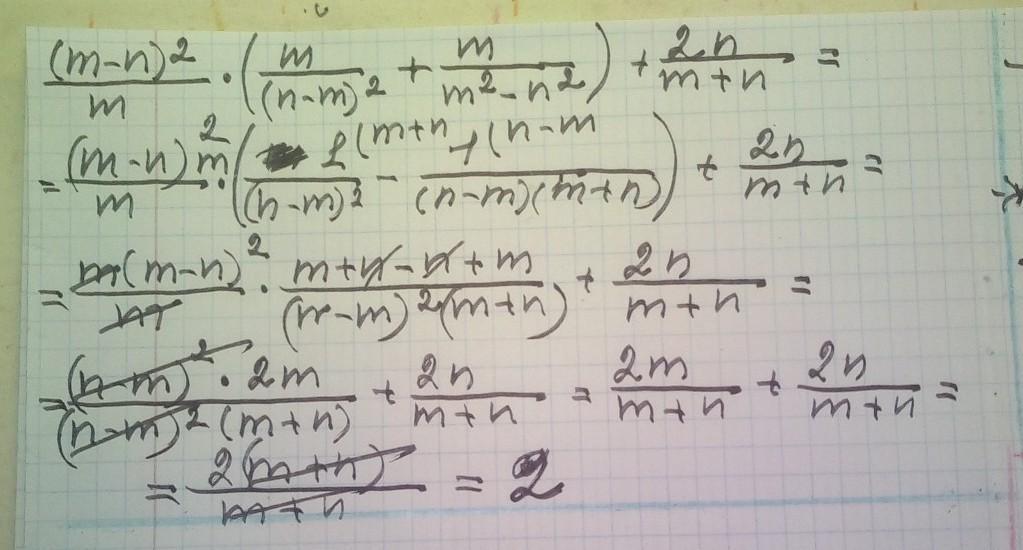 (m-n)²/m · (m/(n-m)² + m/(m²-n²)) + 2n/(m+n) =
= (m-n)²m/m · (1(m+n/(n-m)² - 1(n-m/(n-m)(m+n)) + 2n/(m+n) =
= m(m-n)²/m · (m+n-n+m)/((n-m)²(m+n)) + 2n/(m+n) =
= (n-m)²·2m/((n-m)²(m+n)) + 2n/(m+n) = 2m/(m+n) + 2n/(m+n) =
= 2(m+n)/(m+n) = 2